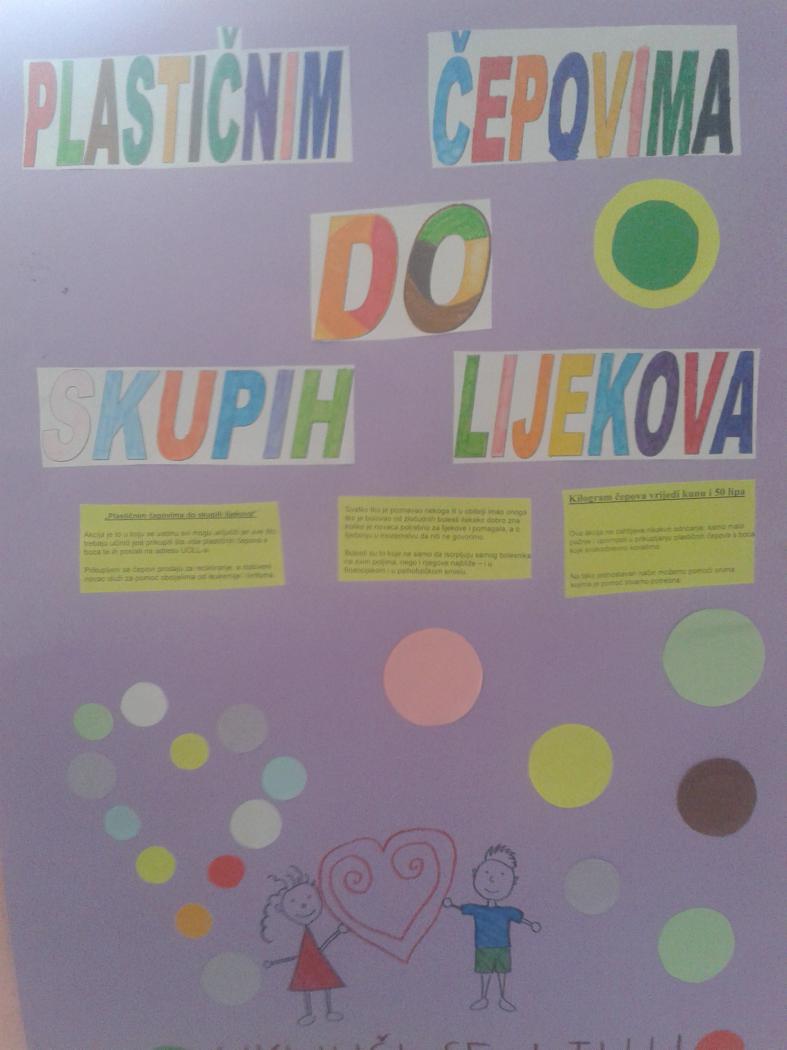 PLASTIČNIM ČEPOVIMA
DO
SKUPIH LIJEKOVA
„Plastičnim čepovima do skupih lijekova"
Akcija je to u koju se uistinu svi mogu uključiti jer sve što
trebaju učiniti jest prikupiti što više plastičnih čepova s
boca te ih poslati na adresu UOLL-a.
Prikupljeni se čepovi prodaju za recikliranje, a dobiveni
novac služi za pomoć oboljelima od leukemije i limfoma.
Svatko tko je poznavao nekoga ili u obitelji imao onoga
tko je bolovao od zloćudnih bolesti itekako dobro zna
koliko je novaca potrebno za lijekove i pomagala, a o
liječenju u inozemstvu da niti ne govorimo.
Bolesti su to koje ne samo da iscrpljuju samog bolesnika
na svim poljima, nego i njegove najbliže – i u
financijskom i u psihološkom smislu.
Kilogram čepova vrijedi kunu i 50 lipa
Ova akcija ne zahtijeva nikakve odricanje, samo malo
pažnje i upornosti u prikupljanju plastičnih čepova s boca
koje svakodnevno koristimo.
Na tako jednostavan način možemo pomoći onima
kojima je pomoć stvarno potrebna.
SE I TI!!!!